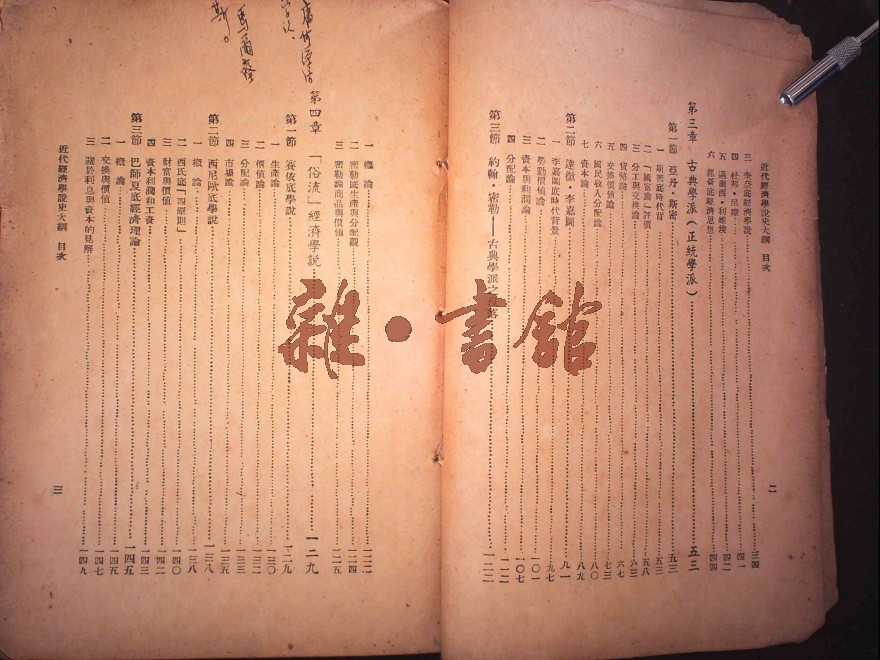 近代經濟學說史大綱 目次
三 奎奈底經濟學說 三四
四 杜邦·尼摩 四一
五 邁爾西·利維埃 四二
六 都哥底經濟思想 四四
第三章 古典學派(正統學派) 五三
第一節 亞丹·斯密 五三
一 斯密底時代背景 五三
二 「國富論」評價 五八
三 分工與交換論 六三
四 貨幣論 六七
五 交換價值論 七三
六 國民收入分配論 八〇
七 資本論 八九
第二節 達微·李嘉圖 九一
一 李嘉圖底時代背景 九七
二 勞動價值論 一〇一
三 資本與利潤論 一〇七
四 分配論 一一二
第三節 約翰·密勒——古典學派之 落 一二二
二
一 概論 一二二
二 密勒底生產與分配觀 一二四
三 密勒論商品與價值 一二五
第四章 「俗流」經濟學說 一二九
第一節 賽依底學說 一二九
一 生產論 一三〇
二 價值論 一三二
三 分配論 一三三
四 市場論 一三五
第二節 西尼歐底學說 一三八
一 概論 一三八
二 西氏底「四原則」 一四〇
三 財富與價值 一四二
四 資本利潤和工資 一四三
第三節 巴師夏底經濟理論 一四五
一 概論 一四五
二 交換與價值 一四七
三 關於利息與資本的見解 一四九
近代經濟學說史大綱 目次
三
馬爾塞
斯。
雜·書館